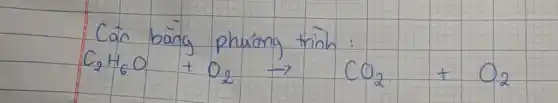 Cân bằng phương trình :
C₂H₆O + O₂ → CO₂ + O₂